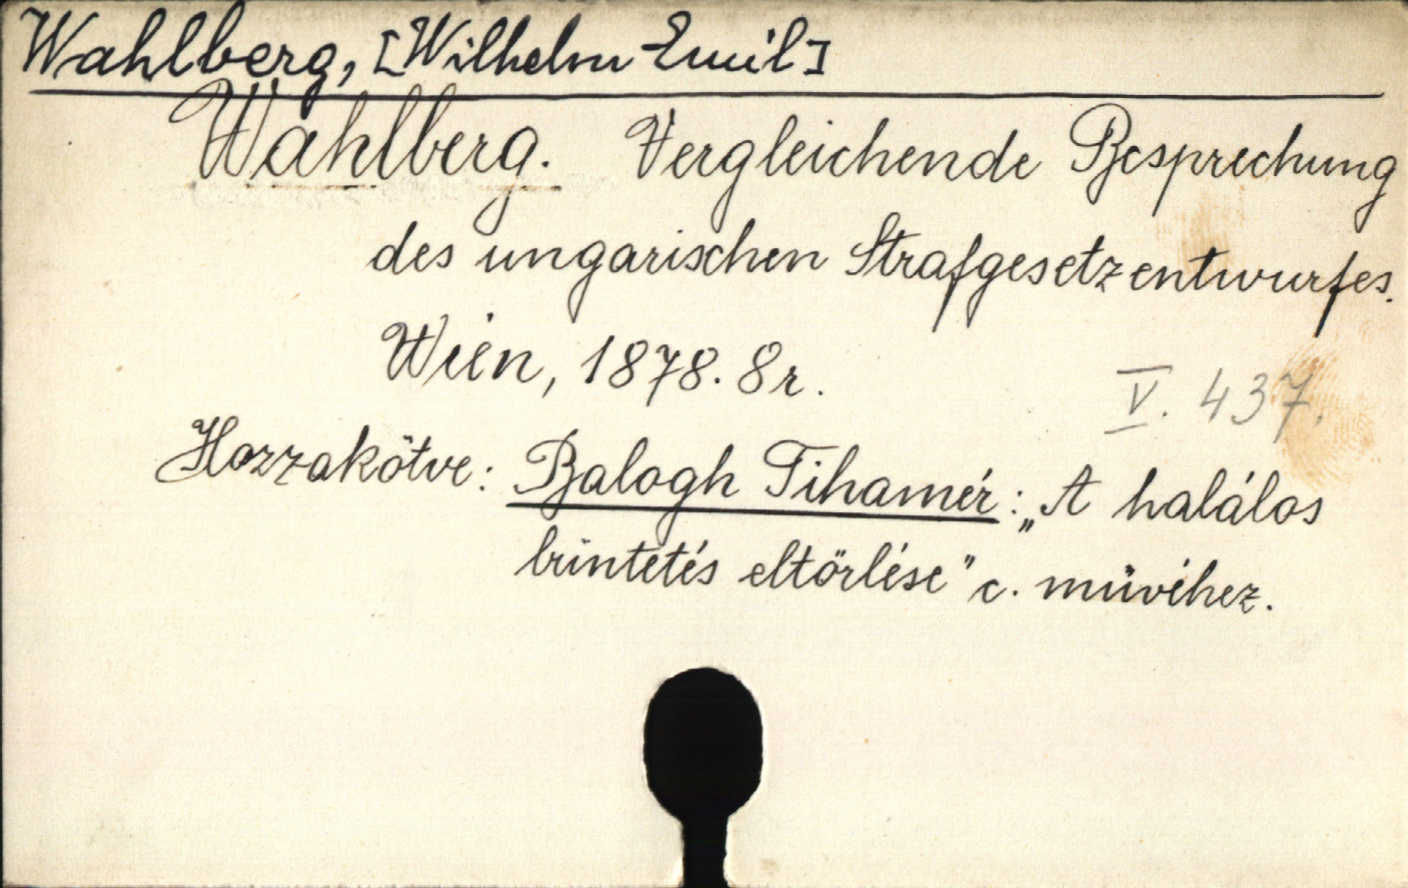 Wahlberg, [Wilhelm Emil]
Wahlberg. Vergleichende Besprechung
des ungarischen Strafgesetzentwurfes.
Wien, 1878. 8r.
V. 437.
Hozzákötve: Balogh Tihamér: „A halálos
büntetés eltörlése" c. művéhez.